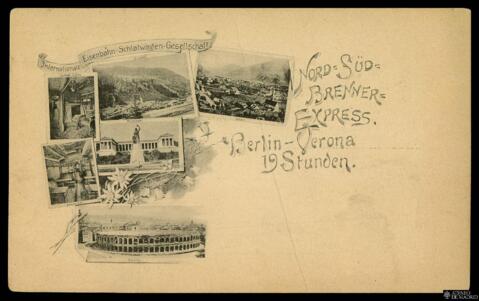 Internationale Eisenbahn-Schlafwagen-Gesellschaft
NORD-SÜD-
BRENNER-
EXPRESS.
Berlin-Verona
19 Stunden.
ATENEO
DE MADRID